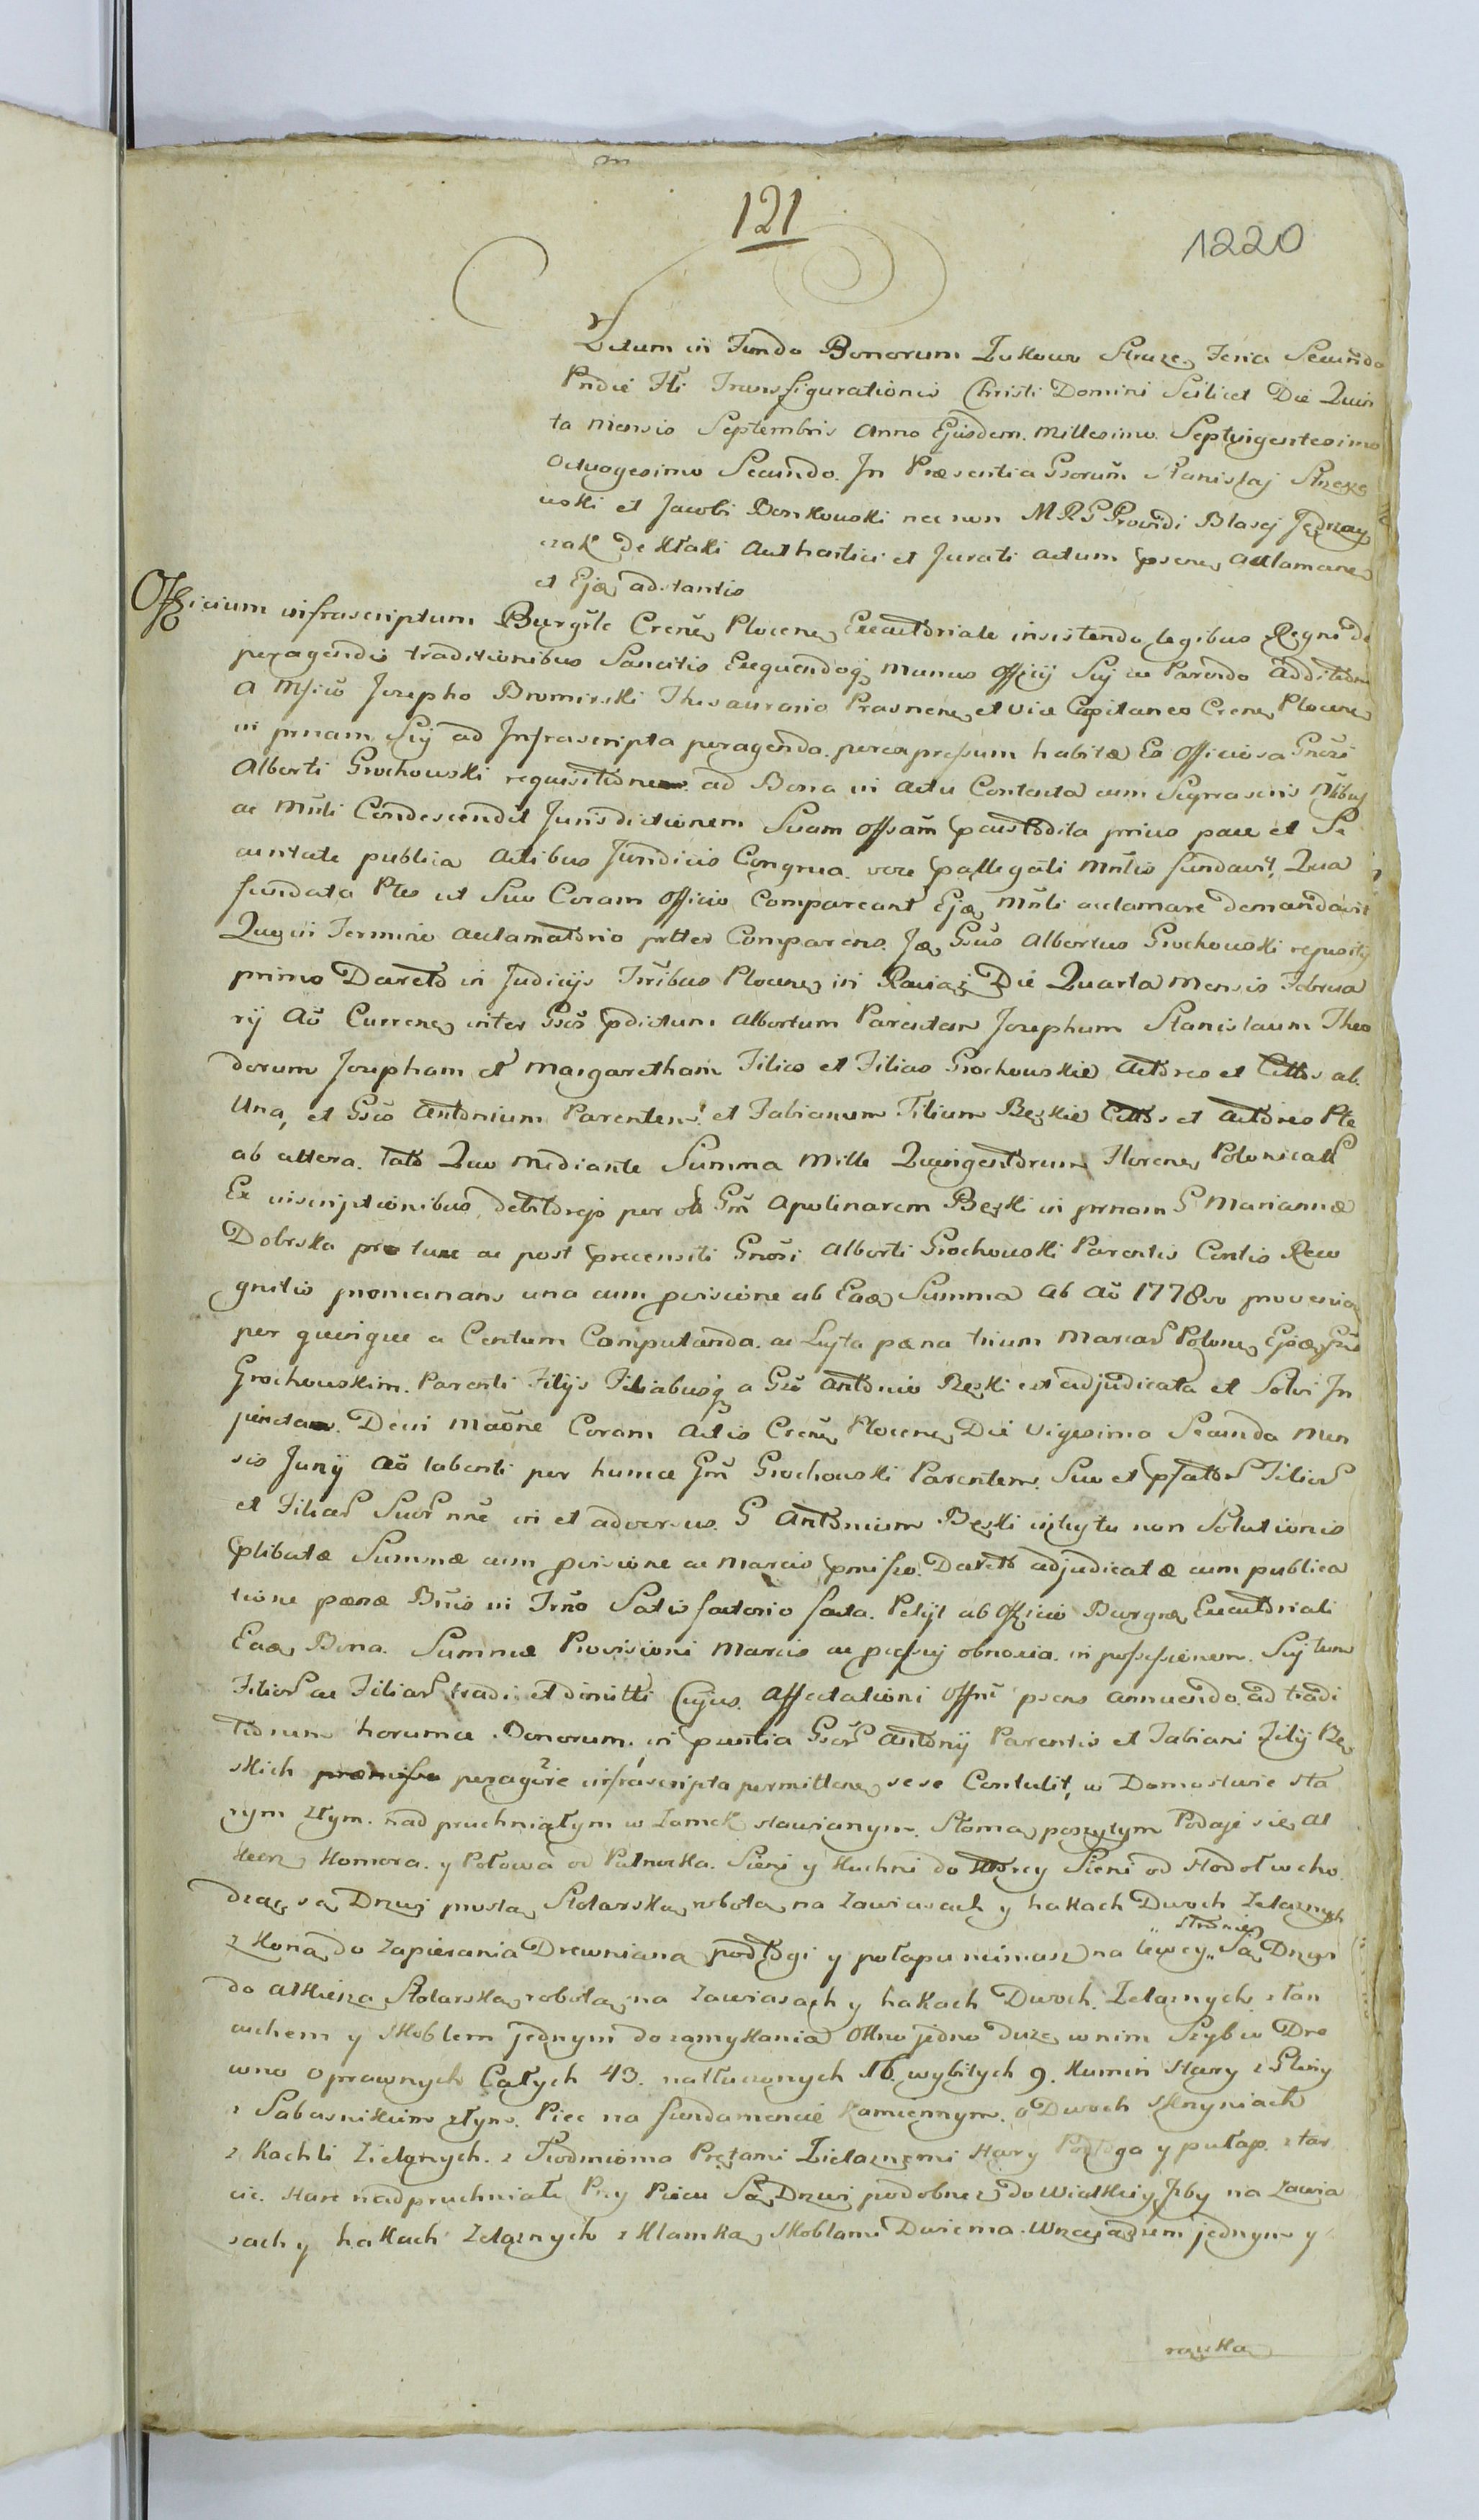 121
1220
Actum in Fundo Bonorum Żukowo Struze, Feria Secunda
Pridie Fti Transfigurationis Christi Domini Scilicet Die Quin
ta Mensis Septembris Anno Ejusdem. Millesimo. Septuigentesimo
Octuagesimo Secundo. In Præsentia Gsorum Stanislaj Strzeże
wski et Jacobi Bonkowski nec non MRS Providi Blasej Jędrzey
czak de Kłaki Authentici et Jurati actum psene, acclamane,
et Ejæ, adstantis
Officium infrascriptum Burgste Crene, Plocene, Executoriale insistendo legibus Regni de
peragendis traditionibus Sancitis Exequendoq, munus Officij Suj ac Parendo additidem
a Mfico Josepho Bromirski Thesaurario Prasnene, et Vice Capitaneo Crene, Plocene,
in prnam Suj ad Infrascripta peragenda. per expressum habitæ Ex Officiosa Gnosi
Alberti Grochowski requisitione ad Bona in Actu Contenta cum Supra scris Nlibus
ac Mnli Condescendit Jurisdictionem Suam Offsam pcustodita prius pace et Se
curitate publica actibus Juridicis Congrua. voce pallegati Mnlis fundavit, Qua
fundata Ptes ut Suo Coram Officio Compareant Ejæ, Mnli acclamare demandavit
Quo in Termino acclamatorio prttes Comparens. Jæ, Gsus Albertus Grochowski reposity
primo Decreto in Judicijs Trribus Plocene, in Raciąż Die Quarta Mensis Februa
rij Aō Currene, inter Gsos pdictum Albertum Parentem Josephum Stanislaum Theo
dorum Josepham et Margaretham Filios et Filias Grochowskie Actores et Cittos ab.
Una, et Gsō Antonium Parentem et Fabianum Filium Bęskie Cittos et Actores Pte
ab altera. lato Quo mediante Summa Mille Quingentorum Florene, Polonicall
Ex inscriptionibus, debitorijs per olt Gm Apolinarem Bęski in prnam G Mariannæ
Dobrska pro tunc ac post precensiti Gnosi Alberti Grochowski Parentis Contis Reco
gnitis promanans una cum provisione ab Eaæ, Summa ab Aō 1778vo provenia
per quinque a Centum Computanda. ac Lujta pæna trium Marcar Polone, Ejsæ, Gsis
Grochowskim. Parenti Filijs Filiabusq, a Gsō Antonio Bęski est adjudicata et Solvi In
juncta. Dein maōne Coram Actis Crene, Plocene, Die Vigesima Secunda Men
sis Junij Aō labenti per hunce Gm Grochowski Parentem. Suo et psator Filior
et Filiar Suor nne in et adversus. G Antonium Bęski
plibatæ Summæ cum provisione ac Marcis pmisso. Decreto adjudicatæ cum publica
tione pænæ Bnis in Trno Satisfactorio facta. Petijt ab Officio Burgræ, Executoriali
Eaæ, Bona. Summæ Provisioni Marcis ac pcessij obnoxia. in possessionem. Suj tum
Filior ac Filiar tradi, et dimitti Cujus. Affectationi Offni psens annuendo. ad tradi
tionem horumce Bonorum. in psentia Gsor Antonij Parentis et Fabiani Filij Bę
skich peragore infrascripta permittene, sese Contulit, w Domostwie sta
rym złym. nad pruchniałym w Zamek stawianym. Słomą poszytym Podaje się Al
kierz Komora. y Połowa od Putnocka. Sieni y Kuchni do ktorey Sieni od stodoł wcho
dząc są Drzwi prosta, Stolarska, robota, na Zawiasach y hakach Dwoch Zelaznych
z Koną do Zapierania Drewniana podłogi y połapu nimasz na lewey stronie Są Drzwi
do alkierza Stolarska, robota, na Zawiasach y hakach Dwoch Zelaznych z łan
cuchem y skoblem jednym do zamykania Okno jedno duze, w nim Szyb w Dre
wno oprawnych Całych 43. natłuczonych 16 wybitych 9. Kumin stary z Gliny
z Sabasnikiem złym. Piec na fundamencie Kamiennym. o Dwoch Skrzyniach
z Kachli Zielonych. z Siodmioma Prętami Zielaznemi stary Podłoga y pułap z tar
cic. stare nadpruchniałe Przy Piecu Są Drzwi podobnez do Wielkiey Jzby na zawia
sach y hakach Zelaznych z Klamką, Skoblami Dwiema. Wrzeciądzem jednym y
rączką